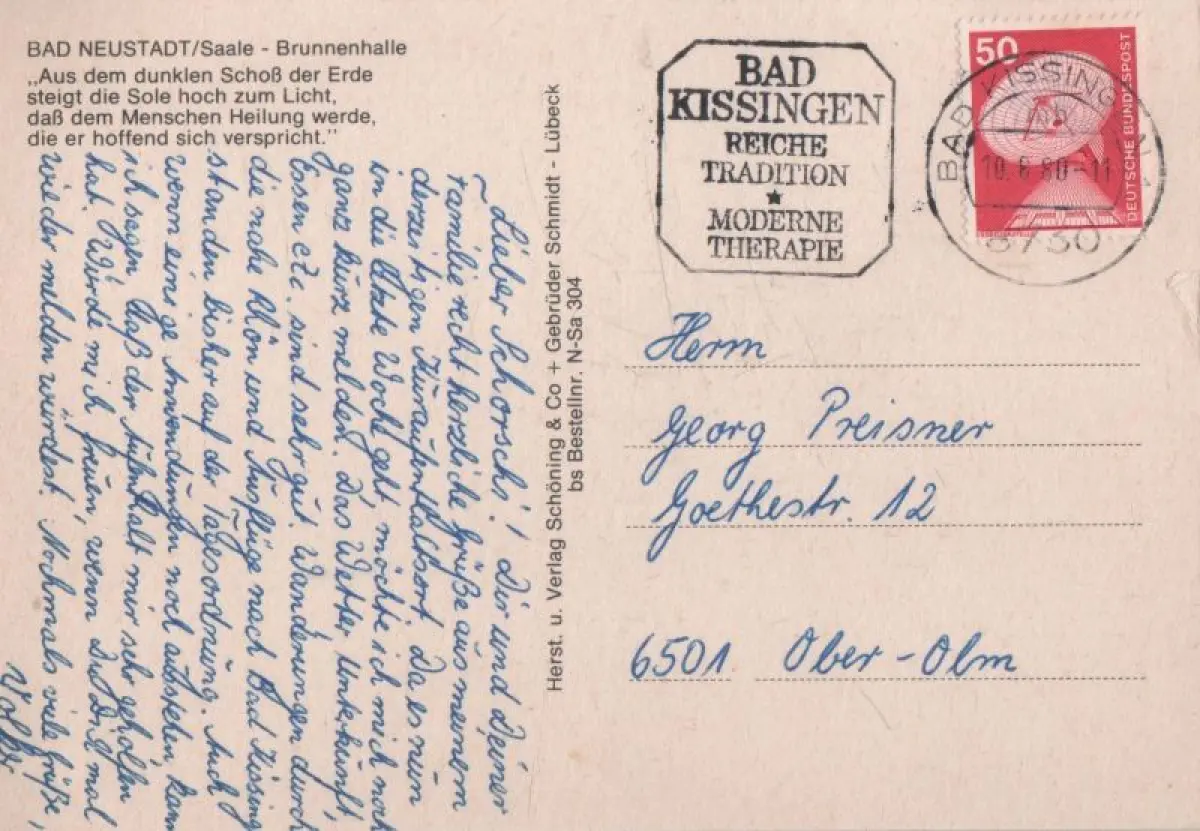 BAD NEUSTADT/Saale - Brunnenhalle
„Aus dem dunklen Schoß der Erde
steigt die Sole hoch zum Licht,
daß dem Menschen Heilung werde,
die er hoffend sich verspricht."
Lieber Schorsch! Dir und Deiner
Familie recht herzliche Grüße aus meinem
derzeitigen Kuraufenthaltsort. Da es nun
in die letzte Woche geht möchte ich mich noch
ganz kurz melden. Das Wetter, Unterkunft,
Essen etc. sind sehr gut. Wanderungen durch
die nahe Rhön und Ausflüge nach Bad Kissing
standen bisher auf der Tagesordnung. Auch
wenn einige Anwendungen noch ausstehen, kann
ich sagen daß der Aufenthalt mir sehr geholfen
hat. Würde mich freuen, wenn Du Dich mal
wieder melden würdest. Nochmals viele Grüße,
Herst. u. Verlag Schöning & Co + Gebrüder Schmidt - Lübeck
bs Bestellnr. N-Sa 304
BAD
KISSINGEN
REICHE
TRADITION
★
MODERNE
THERAPIE
50
DEUTSCHE BUNDESPOST
BAD KISSINGEN 1
10.6.80-11
8730
Herrn
Georg Preisner
Goethestr. 12
6501 Ober-Olm